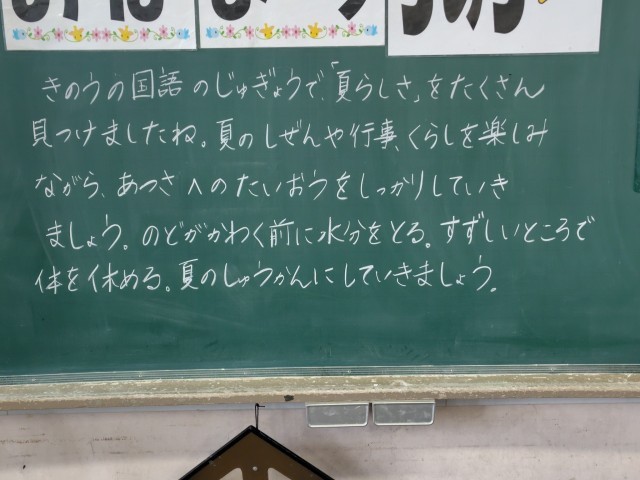 きのうの国語のじゅぎょうで、「夏らしさ」をたくさん
見つけましたね。夏のしぜんや行事、くらしを楽しみ
ながら、あつさへのたいおうをしっかりしていき
ましょう。のどがかわく前に水分をとる。すずしいところで
体を休める。夏のしゅうかんにしていきましょう。